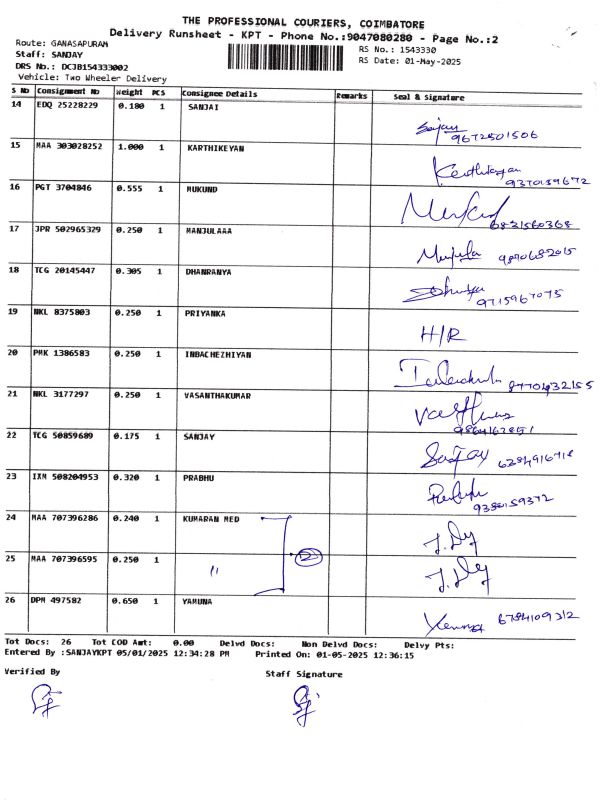 THE PROFESSIONAL COURIERS, COIMBATORE
Delivery Runsheet - KPT - Phone No.:9047080280 - Page No.:2
Route: GANASAPURAM
Staff: SANJAY
DRS No.: DCJB154333002
Vehicle: Two Wheeler Delivery
RS No.: 1543330
RS Date: 01-May-2025
S No Consignment No Weight PCS Consignee Details Remarks Seal & Signature
14 EDQ 25228229 0.180 1 SANJAI
Sanjay 9672501506
15 MAA 303028252 1.000 1 KARTHIKEYAN
Karthikeyan 9370159672
16 PGT 3704846 0.555 1 MUKUND
6831560368
17 JPR 502965329 0.250 1 MANJULAAA
Manjula
18 TCG 20145447 0.305 1 DHANRANYA
9715967075
19 NKL 8375803 0.250 1 PRIYANKA
H/R
20 PMK 1386583 0.250 1 INBACHEZHIYAN
21 NKL 3177297 0.250 1 VASANTHAKUMAR
22 TCG 50859689 0.175 1 SANJAY
Sanjay
23 IXM 508204953 0.320 1 PRABHU
9380159372
24 MAA 707396286 0.240 1 KUMARAN MED
2
25 MAA 707396595 0.250 1 "
26 DPM 497582 0.650 1 YAMUNA
6784109312
Tot Docs: 26 Tot COD Amt: 0.00 Delvd Docs: Non Delvd Docs: Delvy Pts:
Entered By :SANJAYKPT 05/01/2025 12:34:28 PM Printed On: 01-05-2025 12:36:15
Verified By Staff Signature